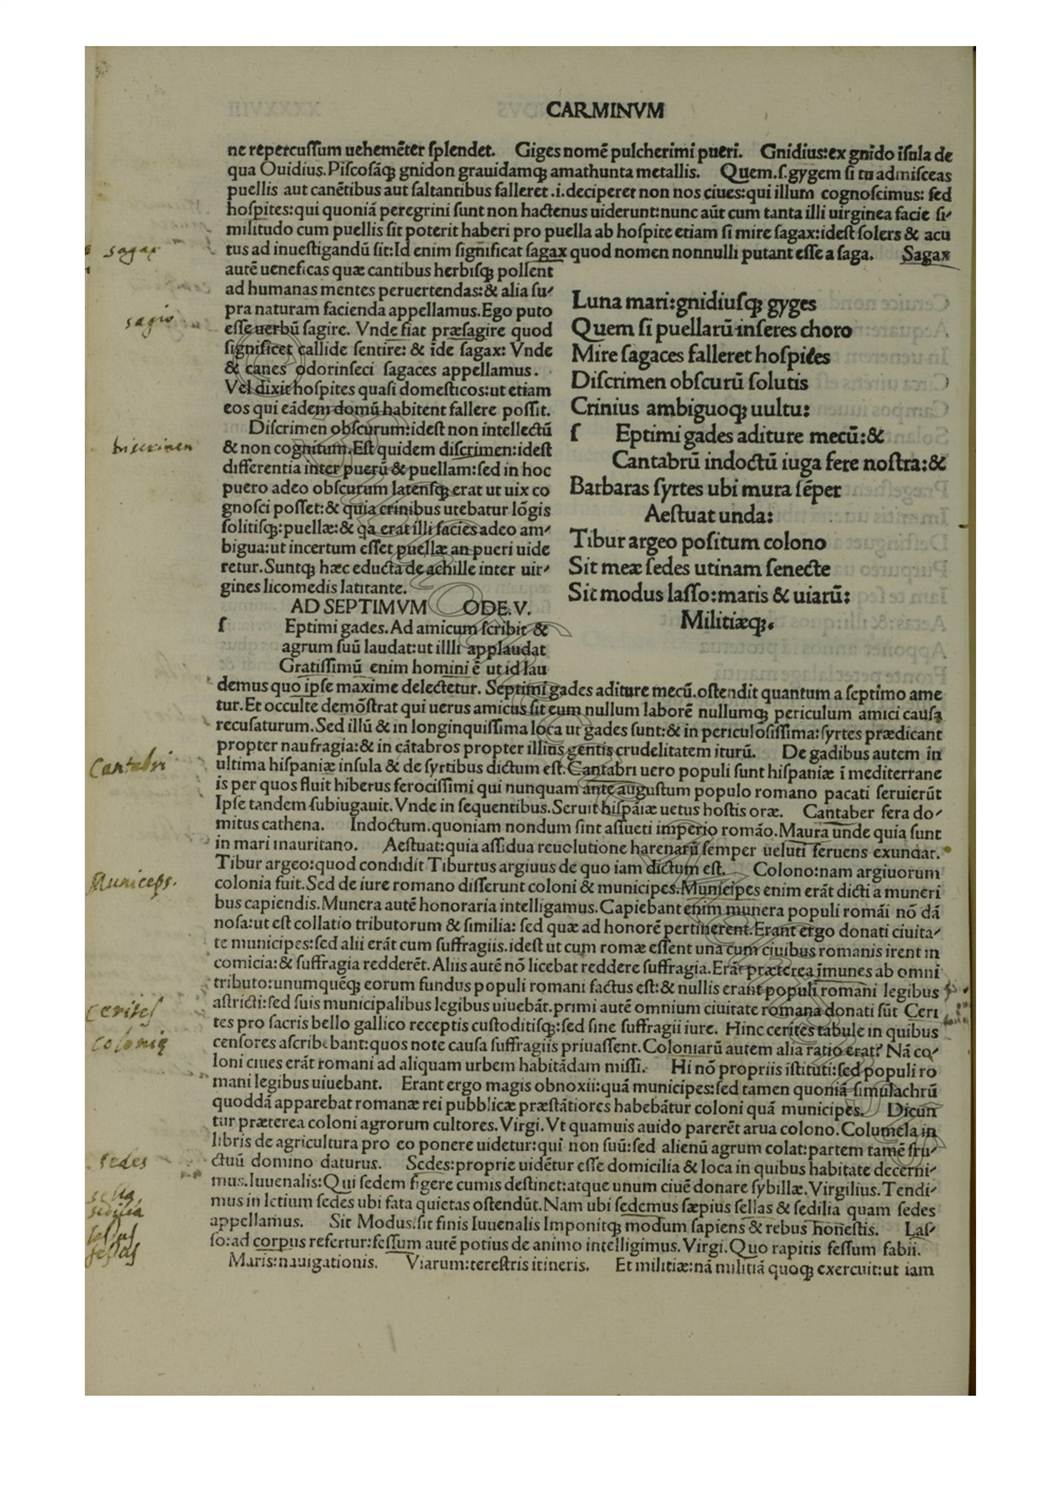 CARMINVM
ne repercuſſum uehemēter ſplendet. Giges nomē pulcherimi pueri. Gnidius:ex gnido īſula de
qua Ouidius.Piſcoſāq; gnidon grauidamq; amathunta metallis. Quem.ſ.gygem ſi tu admiſceas
puellis aut canētibus aut ſaltantibus falleret.i.deciperet non nos ciues:qui illum cognoſcimus: ſed
hoſpites:qui quoniā peregrini ſunt non hactenus uiderunt:nunc aūt cum tanta illi uirginea facie ſi-
militudo cum puellis ſit poterit haberi pro puella ab hoſpite etiam ſi mire ſagax:ideſt ſolers & acu
tus ad inueſtigandū ſit:Id enim ſignificat ſagax quod nomen nonnulli putant eſſe a ſaga. Sagax
autē ueneficas quæ cantibus herbiſq; poſſent
ad humanas mentes peruertendas:& alia ſu-
pra naturam facienda appellamus.Ego puto
eſſe uerbū ſagire. Vnde fiat præſagire quod
ſignificet callide ſentire: & īde ſagax: Vnde
& canes odorinſeci ſagaces appellamus.
Vel dixit hoſpites quaſi domeſticos:ut etiam
eos qui eādem domū habitent fallere poſſit.
Diſcrimen obſcurum:ideſt non intellectū
& non cognitum.Eſt quidem diſcrimen:ideſt
differentia inter puerū & puellam:ſed in hoc
puero adeo obſcurum latenſq; erat ut uix co
gnoſci poſſet:& quia crinibus utebatur lōgis
ſolitiſq;:puellæ:& qa erat illi facies adeo am-
bigua:ut incertum eſſet puellæ an pueri uide
retur.Suntq; hæc educta de achille inter uir-
gines licomedis latitante.
Luna mari:gnidiuſq; gyges
Quem ſi puellarū inſeres choro
Mire ſagaces falleret hoſpites
Diſcrimen obſcurū ſolutis
Crinius ambiguoq; uultu:
ſ Eptimi gades aditure mecū:&
Cantabrū indoctū iuga fere noſtra:&
Barbaras ſyrtes ubi mura ſēper
Aeſtuat unda:
Tibur argeo poſitum colono
Sit meæ ſedes utinam ſenecte
Sit modus laſſo:maris & uiarū:
Militiæq;.
AD SEPTIMVM ODE.V.
ſ Eptimi gades.Ad amicum ſcribit &
agrum ſuū laudat:ut illli applaudat
Gratiſſimū enim homini ē ut id lau
demus quo ipſe maxime delectetur. Septimi gades aditure mecū.oſtendit quantum a ſeptimo ame
tur.Et occulte demōſtrat qui uerus amicus ſit cum nullum laborē nullumq; periculum amici cauſa
recuſaturum.Sed illū & in longinquiſſima loca ut gades ſunt:& in periculoſiſſima:ſyrtes prædicant
propter naufragia:& in cātabros propter illius gentis crudelitatem iturū. De gadibus autem in
ultima hiſpaniæ inſula & de ſyrtibus dictum eſt.Cantabri uero populi ſunt hiſpaniæ ī mediterrane
is per quos fluit hiberus ferociſſimi qui nunquam ante auguſtum populo romano pacati ſeruierūt
Ipſe tandem ſubiugauit.Vnde in ſequentibus.Seruit hiſpāiæ uetus hoſtis oræ. Cantaber ſera do-
mitus cathena. Indoctum.quoniam nondum ſint aſſueti imperio romāo.Maura unde quia ſunt
in mari mauritano. Aeſtuat:quia aſſidua reuolutione harenarū ſemper ueluti feruens exundat.
Tibur argeo:quod condidit Tiburtus argiuus de quo iam dictum eſt. Colono:nam argiuorum
colonia fuit.Sed de iure romano differunt coloni & municipes.Municipes enim erāt dicti a muneri
bus capiendis.Munera autē honoraria intelligamus.Capiebant enim munera populi romāi nō dā
noſa:ut eſt collatio tributorum & ſimilia: ſed quæ ad honorē pertinerent.Erant ergo donati ciuita-
te municipes:ſed alii erāt cum ſuffragiis.ideſt ut cum romæ eſſent una cum ciuibus romanis irent in
comicia:& ſuffragia redderēt.Aliis autē nō licebat reddere ſuffragia.Erāt præterea īmunes ab omni
tributo:unumquēq; eorum fundus populi romani factus eſt:& nullis erant populi romani legibus
aſtricti:ſed ſuis municipalibus legibus uiuebāt.primi autē omnium ciuitate romana donati ſūt Ceri
tes pro ſacris bello gallico receptis cuſtoditiſq;:ſed ſine ſuffragii iure. Hinc cerites tabule in quibus
cenſores aſcribebant:quos note cauſa ſuffragiis priuaſſent.Coloniarū autem alia ratio erat? Nā co-
loni ciues erāt romani ad aliquam urbem habitādam miſſi. Hi nō propriis iſtituti:ſed populi ro
mani legibus uiuebant. Erant ergo magis obnoxii:quā municipes:ſed tamen quoniā ſimulachrū
quoddā apparebat romanæ rei pubblicæ præſtātiores habebātur coloni quā municipes. Dicun
tur præterea coloni agrorum cultores.Virgi.Vt quamuis auido parerēt arua colono.Columela in
libris de agricultura pro eo ponere uidetur:qui non ſuū:ſed alienū agrum colat:partem tamē fru-
ctuū domino daturus. Sedes:proprie uidētur eſſe domicilia & loca in quibus habitate decerni-
mus.Iuuenalis:Qui ſedem figere cumis deſtinet:atque unum ciuē donare ſybillæ.Virgilius.Tendi-
mus in letium ſedes ubi fata quietas oſtendūt.Nam ubi ſedemus ſæpius ſellas & ſedilia quam ſedes
appellamus. Sit Modus.ſit finis Iuuenalis Imponitq; modum ſapiens & rebus honeſtis. Laſ-
ſo:ad corpus refertur:feſſum autē potius de animo intelligimus.Virgi.Quo rapitis feſſum fabii.
Maris:nauigationis. Viarum:tereſtris itineris. Et militiæ:nā militiā quoq; exercuit:ut iam
sagax
sagio
discrimen
Cantabri
Municeps.
Cerites
Colonię
sedes
sella
sedilia
lassus
fessus